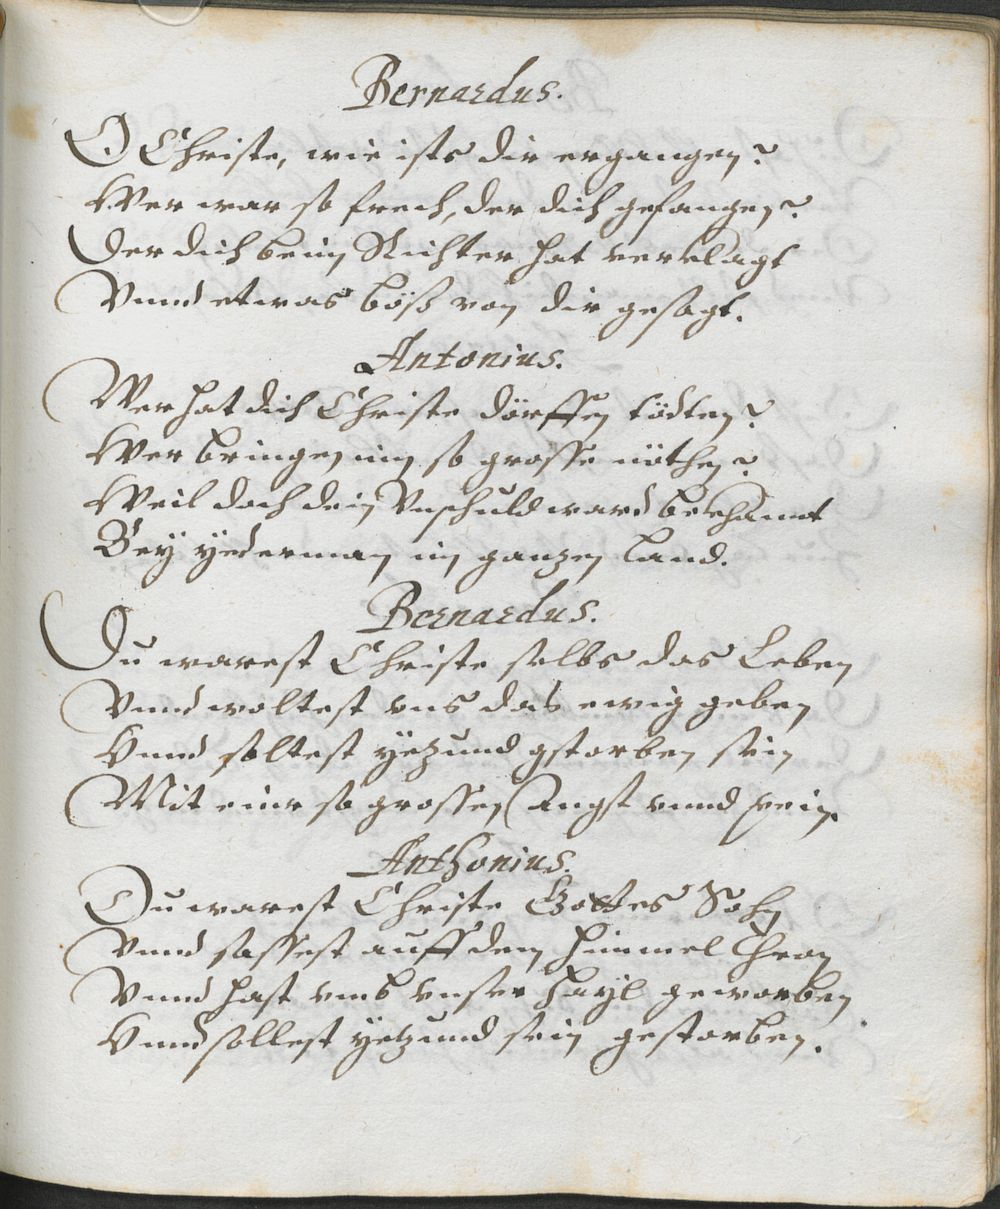 Bernardus.
O Christe, wie ists dir ergangen?
Wer war so frech, der dich gefangen?
Der dich beim Richter hat verklagt
Vnnd etwas böß von dir gesagt.
Antonius.
Wer hat dich Christe dörffen tödten?
Wer bringen inn so grosse nöthen?
Weil doch dein Vnschuld ward bekhannt
Bey yederman im ganzen Land.
Bernardus.
Du warest Christe selbs das Leben
Vnnd woltest vns das ewig geben
Vnnd soltest yetzund gstorben sein
Mit einr so grossen Angst vnnd pein.
Anthonius.
Du warest Christe Gottes Sohn
Vnnd sassest auff dem himmel Thron
Vnnd hast vmb vnser hayl geworben
Vnnd sollest yetzund sein gestorben.